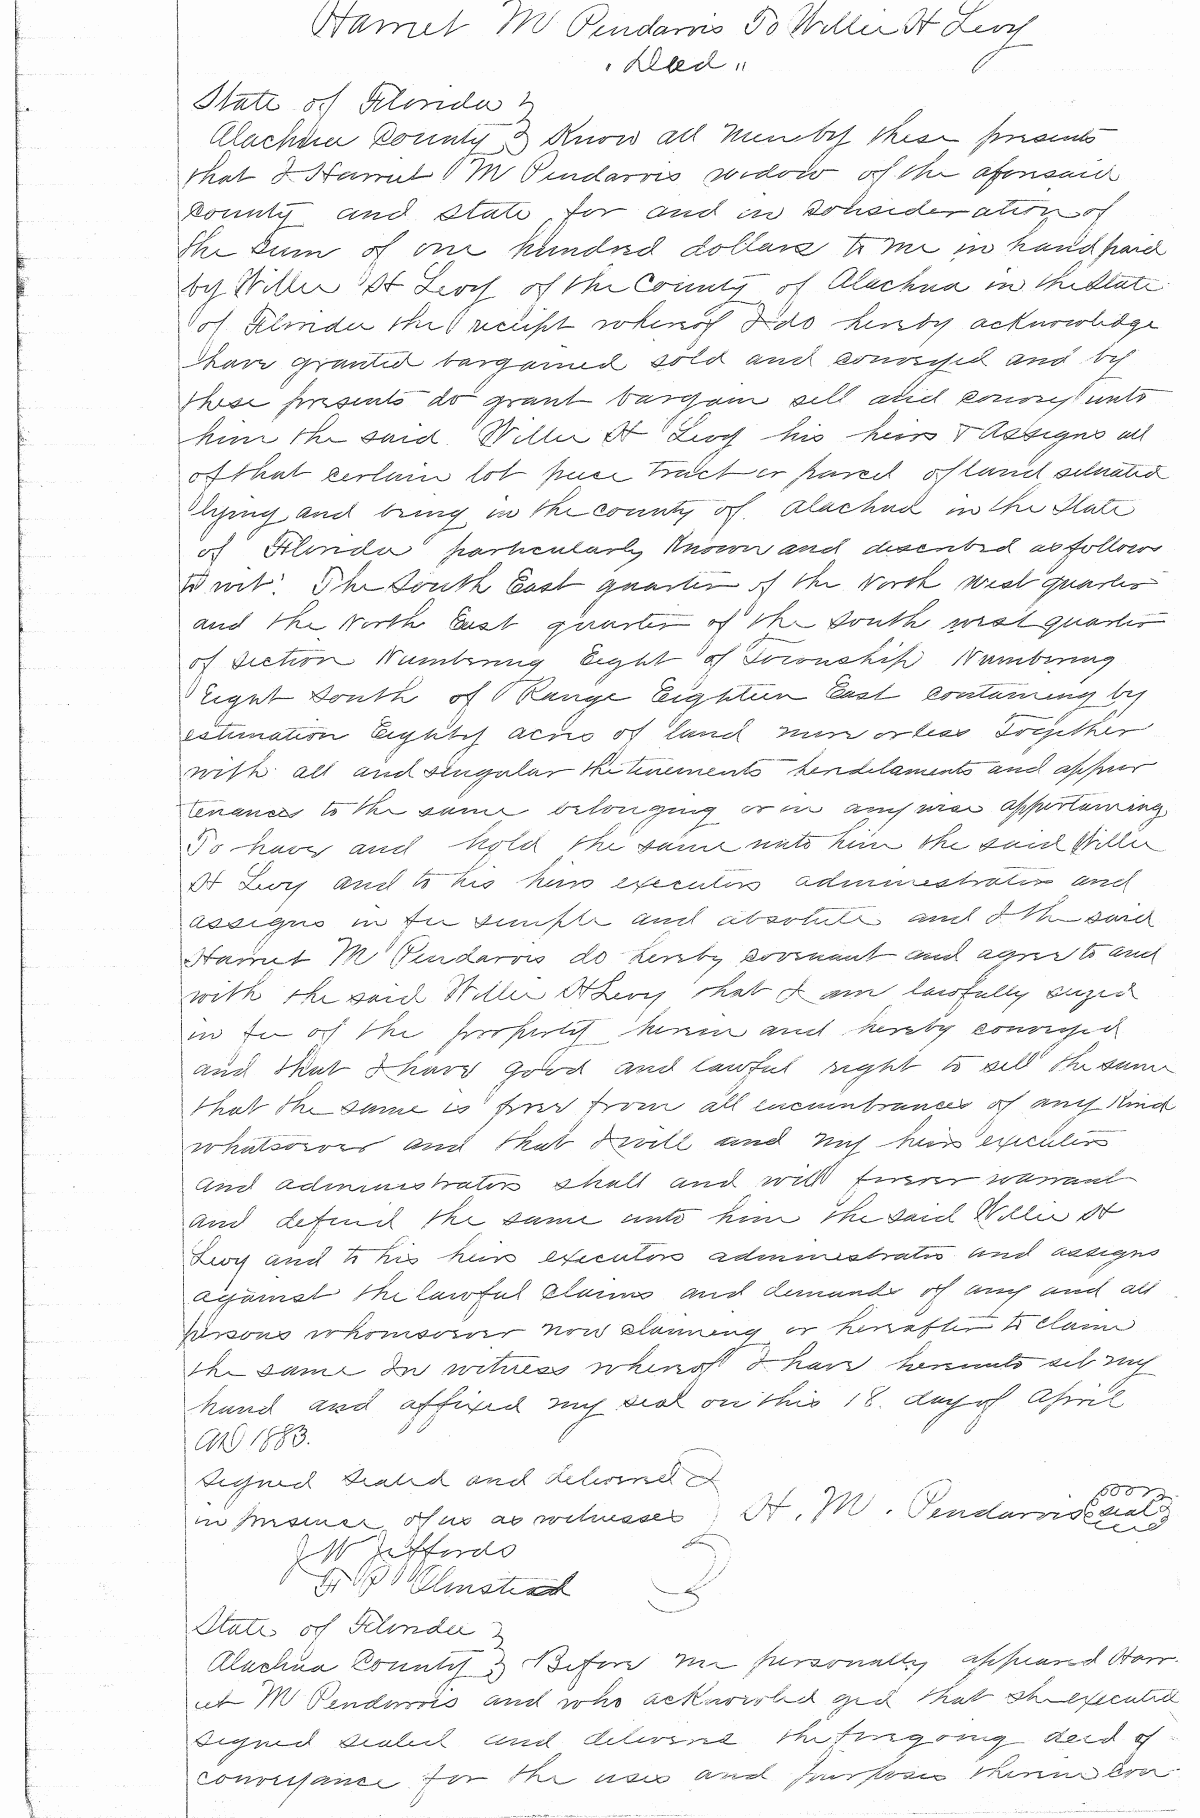 Harriet M Pendarvis To Willie H Levy
"Deed"
State of Florida }
Alachua County } Know all Men by these presents
that I Harriet M Pendarvis widow of the aforesaid
County and State, for and in consideration of
the Sum of one hundred dollars to me in hand paid
by Willie H Levy of the County of Alachua in the State
of Florida the receipt whereof I do hereby acknowledge
have granted bargained sold and conveyed and by
these presents do grant bargain sell and convey unto
him the said Willie H Levy his heirs & Assigns all
of that certain lot piece tract or parcel of land situated
lying and being in the county of Alachua in the State
of Florida particularly Known and described as follows
to wit: The South East quarter of the North West quarter
and the North East quarter of the South west quarter
of Section Numbering Eight of Township Numbering
Eight South of Range Eighteen East containing by
estimation Eighty acres of land more or less Together
with all and singular the tenements herdelaments and appur
tenances to the same belonging or in any wise appertaining
To have and hold the same unto him the said Willie
H Levy and to his heirs executors administrators and
assigns in fee simple and absolute and I the said
Harriet M Pendarvis do hereby covenant and agree to and
with the said Willie H Levy that I am lawfully seized
in fee of the property herein and hereby conveyed
and that I have good and lawful right to sell the same
that the same is free from all encumbrances of any Kind
whatsoever and that I will and my heirs executors
and administrators shall and will forever warrant
and defend the same unto him the said Willie H
Levy and to his heirs executors administrators and assigns
against the lawful claims and demands of any and all
persons whomsoever now claiming or hereafter to claim
the same In witness whereof I have hereunto set my
hand and affixed my seal on this 18. day of April
AD 1883.
Signed Sealed and delivered }
in presence of us as witnesses } H. M. Pendarvis (seal)
J W Jeffords
P Olmstead
State of Florida }
Alachua County } Before me personally appeared Harr-
iet M Pendarvis and who acknowled ged that she executed
signed sealed and delivered the foregoing deed of
conveyance for the uses and purposes therein con-